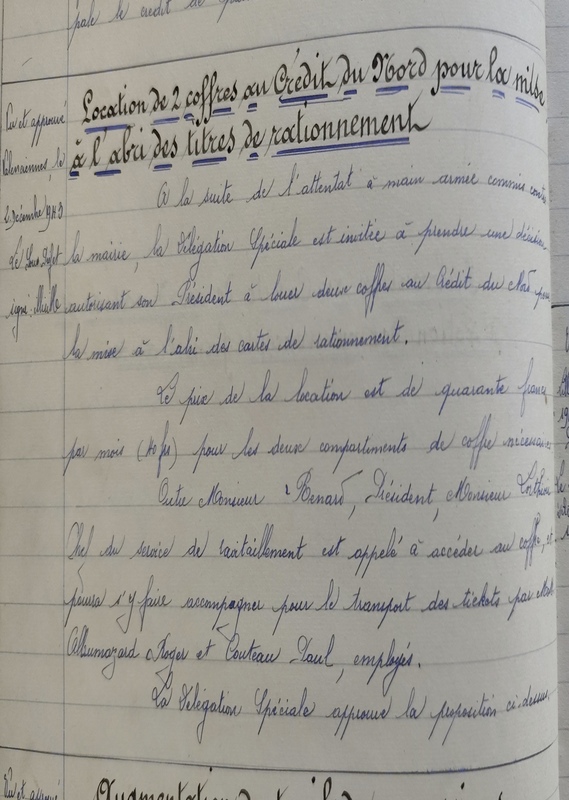 pale le crédit de
Location de 2 coffres au Crédit du Nord pour la mise
à l'abri des titres de rationnement
Vu et approuvé
Valenciennes, le
2 Décembre 1943
Le Sous Préfet
signé:
A la suite de l'attentat à main armée commis contre
la mairie, la Délégation Spéciale est invitée à prendre une décision
autorisant son Président à louer deux coffres au Crédit du Nord pour
la mise à l'abri des cartes de rationnement.
Le prix de la location est de quarante francs
par mois (40 frs) pour les deux compartiments de coffre nécessaires
Outre Monsieur Renard, Président, Monsieur
Chef du service de ravitaillement est appelé à accéder au coffre, et
pourra s'y faire accompagner pour le transport des tickets par
Roger et Couteau Paul, employés.
La Délégation Spéciale approuve la proposition ci-dessus.
Vu et approuvé
Augmentation